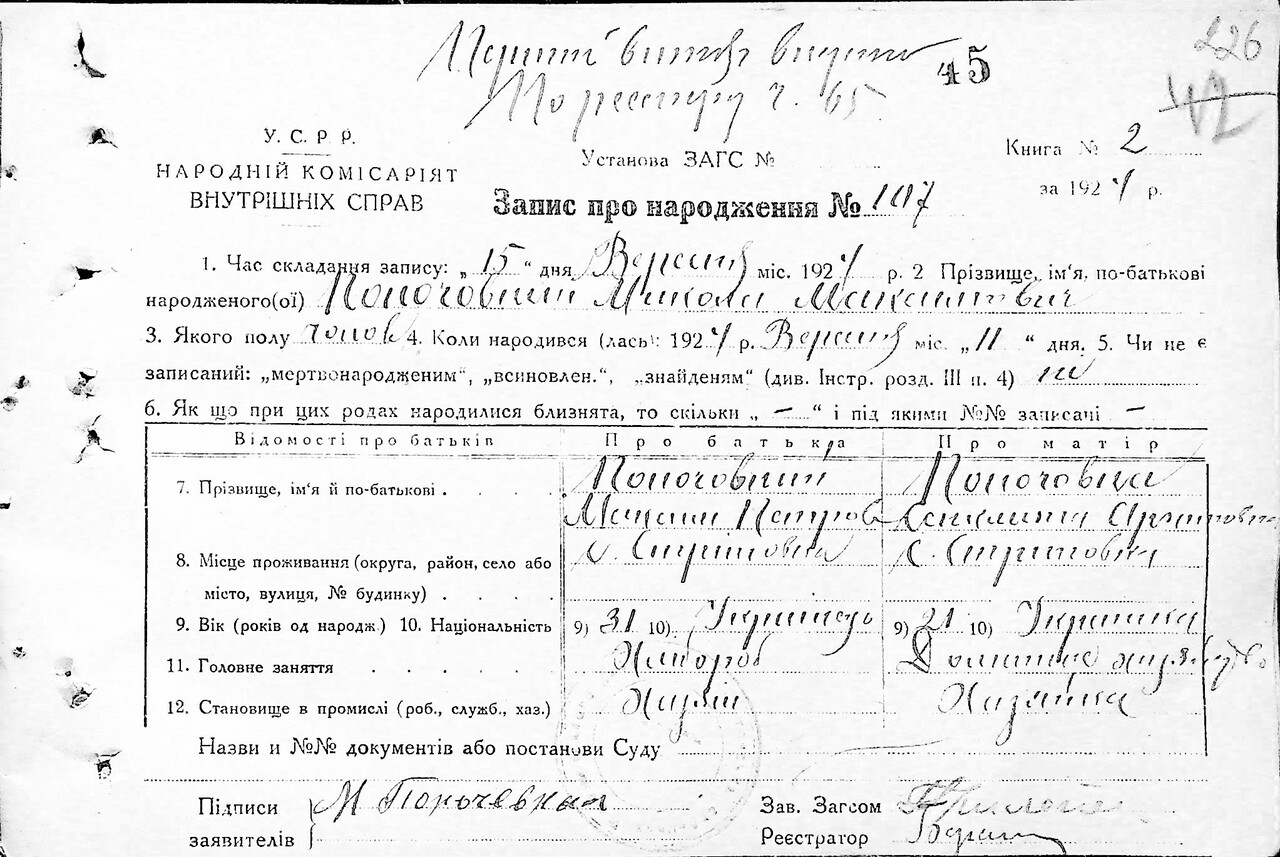 Перший витяг видано
По реєстру ч. 65
45
226
42
У. С. Р. Р.
НАРОДНІЙ КОМІСАРІЯТ
ВНУТРІШНІХ СПРАВ
Установа ЗАГС №
Книга № 2
за 1924 р.
Запис про народження № 107
1. Час складання запису: „ 15 “ дня Вересня міс. 1924 р. 2 Прізвище, ім'я, по-батькові
народженого(ої) Поночовний Микола Максимович
3. Якого полу чолов 4. Коли народився (лась): 1924 р. Вересня міс. „ 11 “ дня. 5. Чи не є
записаний: „мертвонародженим“, „всиновлен.“, „знайденям“ (див. Інстр. розд. III п. 4) ні
6. Як що при цих родах народилися близнята, то скільки „ — “ і під якими №№ записані —
Відомості про батьків Про батька Про матір
7. Прізвище, ім'я й по-батькові . . . . Поночовний Поночовна
Максим Петров
8. Місце проживання (округа, район, село або с. Стритовка с. Стритовка
місто, вулиця, № будинку) . . . .
9. Вік (років од народж.) 10. Національність 9) 31 10) Українець 9) 21 10) Українка
11. Головне заняття . . . . . Хлібороб Домашнє
12. Становище в промислі (роб., служб., хаз.) Хазяїн Хазяйка
Назви и №№ документів або постанови Суду
Підписи М Поночевный Зав. Загсом
заявителів Реєстратор